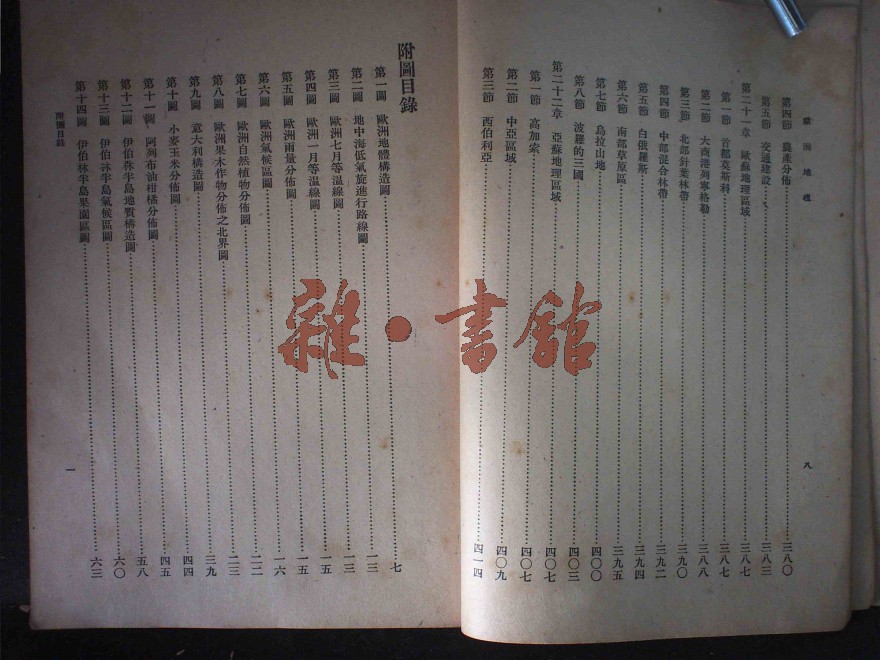 歐洲地理
第四節 農產分佈 三八〇
第五節 交通建設 三八三
第二十一章 歐蘇地理區域 三八七
第一節 首都莫斯科 三八七
第二節 大商港列寧格勒 三八八
第三節 北部針葉林帶 三九〇
第四節 中部混合林帶 三九二
第五節 白俄羅斯 三九四
第六節 南部草原區 三九五
第七節 烏拉山地 四〇〇
第八節 波羅的三國 四〇三
第二十二章 亞蘇地理區域 四〇七
第一節 高加索 四〇七
第二節 中亞區域 四〇九
第三節 西伯利亞 四一四
八
附圖目錄
第一圖 歐洲地體構造圖 七
第二圖 地中海低氣旋進行路線圖 一三
第三圖 歐洲七月等溫線圖 一三
第四圖 歐洲一月等溫線圖 一五
第五圖 歐洲雨量分佈圖 一五
第六圖 歐洲氣候區圖 一六
第七圖 歐洲自然植物分佈圖 二二
第八圖 歐洲果木作物分佈之北界圖 二三
第九圖 意大利構造圖 三九
第十圖 小麥玉米分佈圖 四四
第十一圖 阿列布油柑橘分佈圖 四五
第十二圖 伊伯林半島地質構造圖 五八
第十三圖 伊伯林半島氣候區圖 六〇
第十四圖 伊伯林半島果園區圖 六三
附圖目錄
一
雜·書館